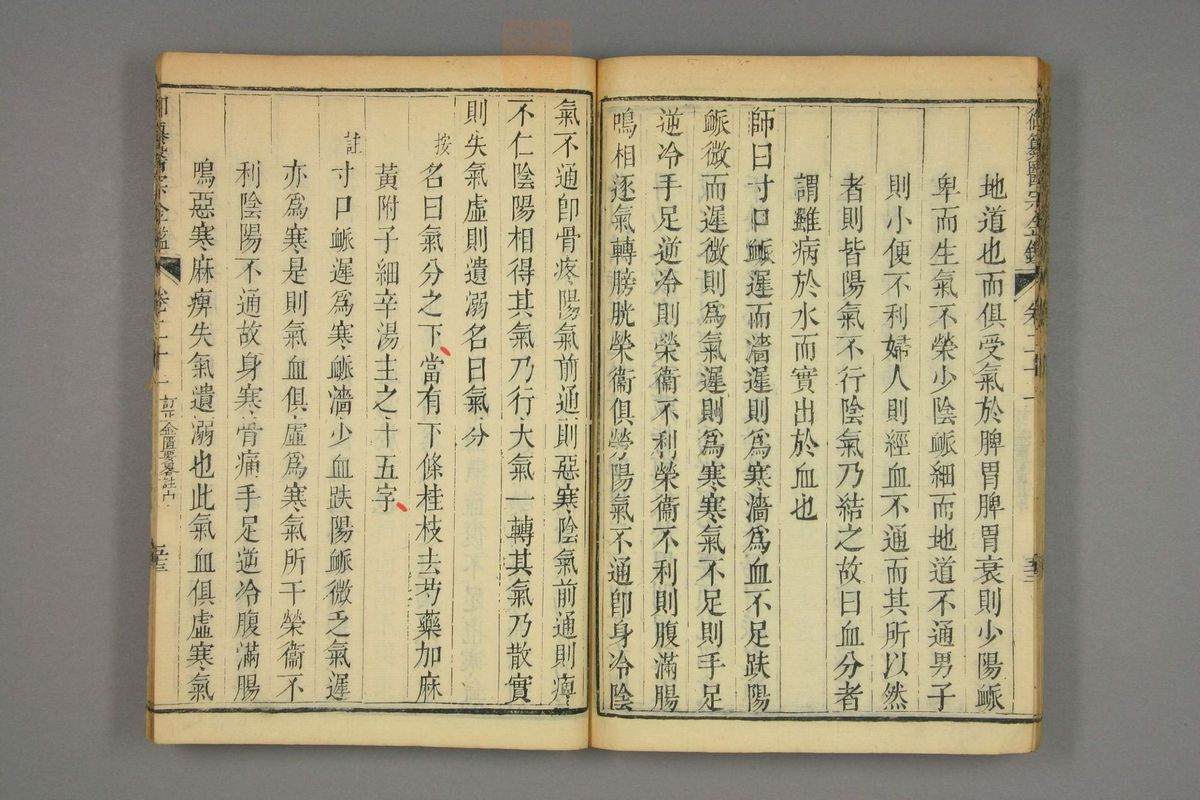 御纂醫宗金鑑 卷二十一
地道也而俱受氣於脾胃脾胃衰則少陽脈
卑而生氣不榮少陰脈細而地道不通男子
則小便不利婦人則經血不通而其所以然
者則皆陽氣不行陰氣乃結之故曰血分者
謂雖病於水而實出於血也
師曰寸口脈遲而濇遲則爲寒濇爲血不足趺陽
脈微而遲微則爲氣遲則爲寒寒氣不足則手足
逆冷手足逆冷則榮衞不利榮衞不利則腹滿腸
鳴相逐氣轉膀胱榮衞俱勞陽氣不通卽身冷陰
氣不通卽骨疼陽氣前通則惡寒陰氣前通則痹
不仁陰陽相得其氣乃行大氣一轉其氣乃散實
則失氣虛則遺溺名曰氣分
按 名曰氣分之下當有下條桂枝去芍藥加麻
黃附子細辛湯主之十五字
註 寸口脈遲爲寒脈濇少血趺陽脈微乏氣遲
亦爲寒是則氣血俱虛爲寒氣所干榮衞不
利陰陽不通故身寒骨痛手足逆冷腹滿腸
鳴惡寒麻痹失氣遺溺也此氣血俱虛寒氣
御纂醫宗金鑑 卷二十一 訂正金匱要畧註